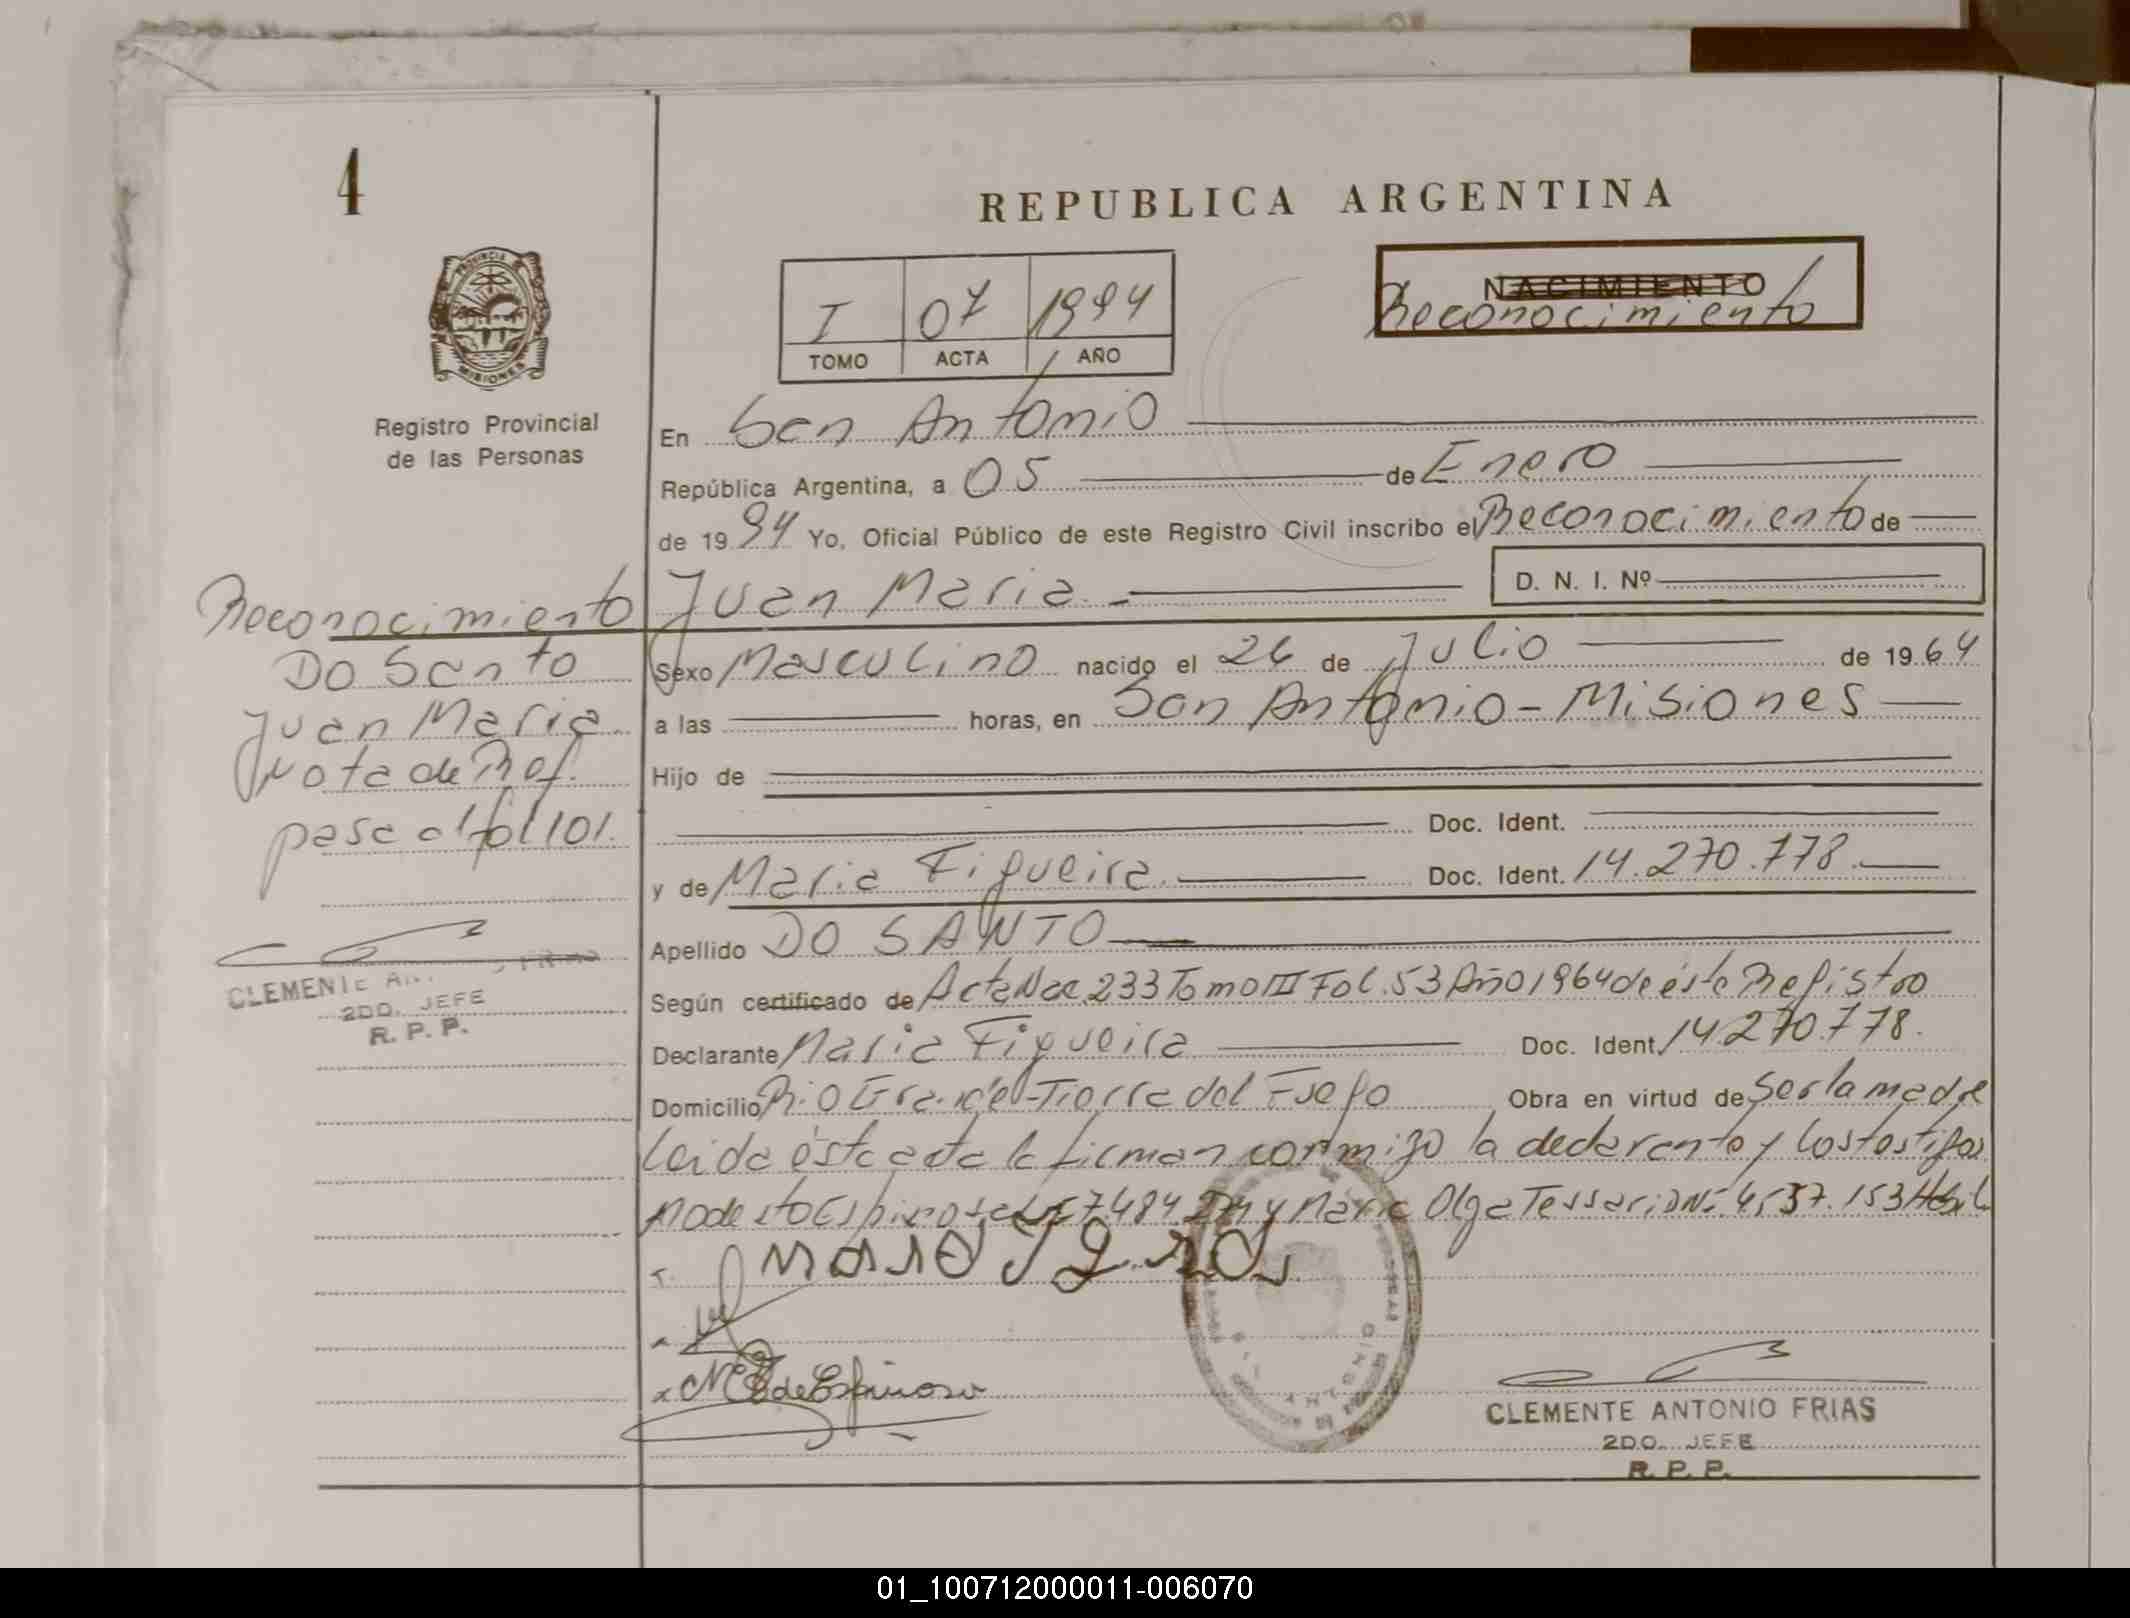 4
REPUBLICA ARGENTINA
PROVINCIA DE
MISIONES
Registro Provincial
de las Personas
I 07 1994
TOMO ACTA AÑO
NACIMIENTO
Reconocimiento
En San Antonio
República Argentina, a 05 de Enero
de 1994 Yo, Oficial Público de este Registro Civil inscribo el Reconocimiento de
Juan Maria.
D. N. I. Nº
Sexo Masculino nacido el 26 de Julio de 1964
a las horas, en San Antonio - Misiones
Hijo de
Doc. Ident.
y de Maria Figueira. Doc. Ident. 14.270.778.
Apellido DO SANTO
Según certificado de Acta Nac 233 Tomo III Fol. 53 Año 1964 de éste Registro
Declarante Maria Figueira Doc. Ident. 14.270.778.
Domicilio Rio Grande - Tierra del Fuego Obra en virtud de Ser la madre
Leida ésta acta la firman conmigo la declarante y los testigos
Modesto Espinosa 7.484 y Maria Olga Tessari DNI 4. 37.153 Habil
M de Espinosa
CLEMENTE ANTONIO FRIAS
2DO. JEFE
R. P. P.
Reconocimiento
DO Santo
Juan Maria.
Nota de Ref.
pasa al fol 101.
CLEMENTE
2DO. JEFE
R. P. P.
01_100712000011-006070